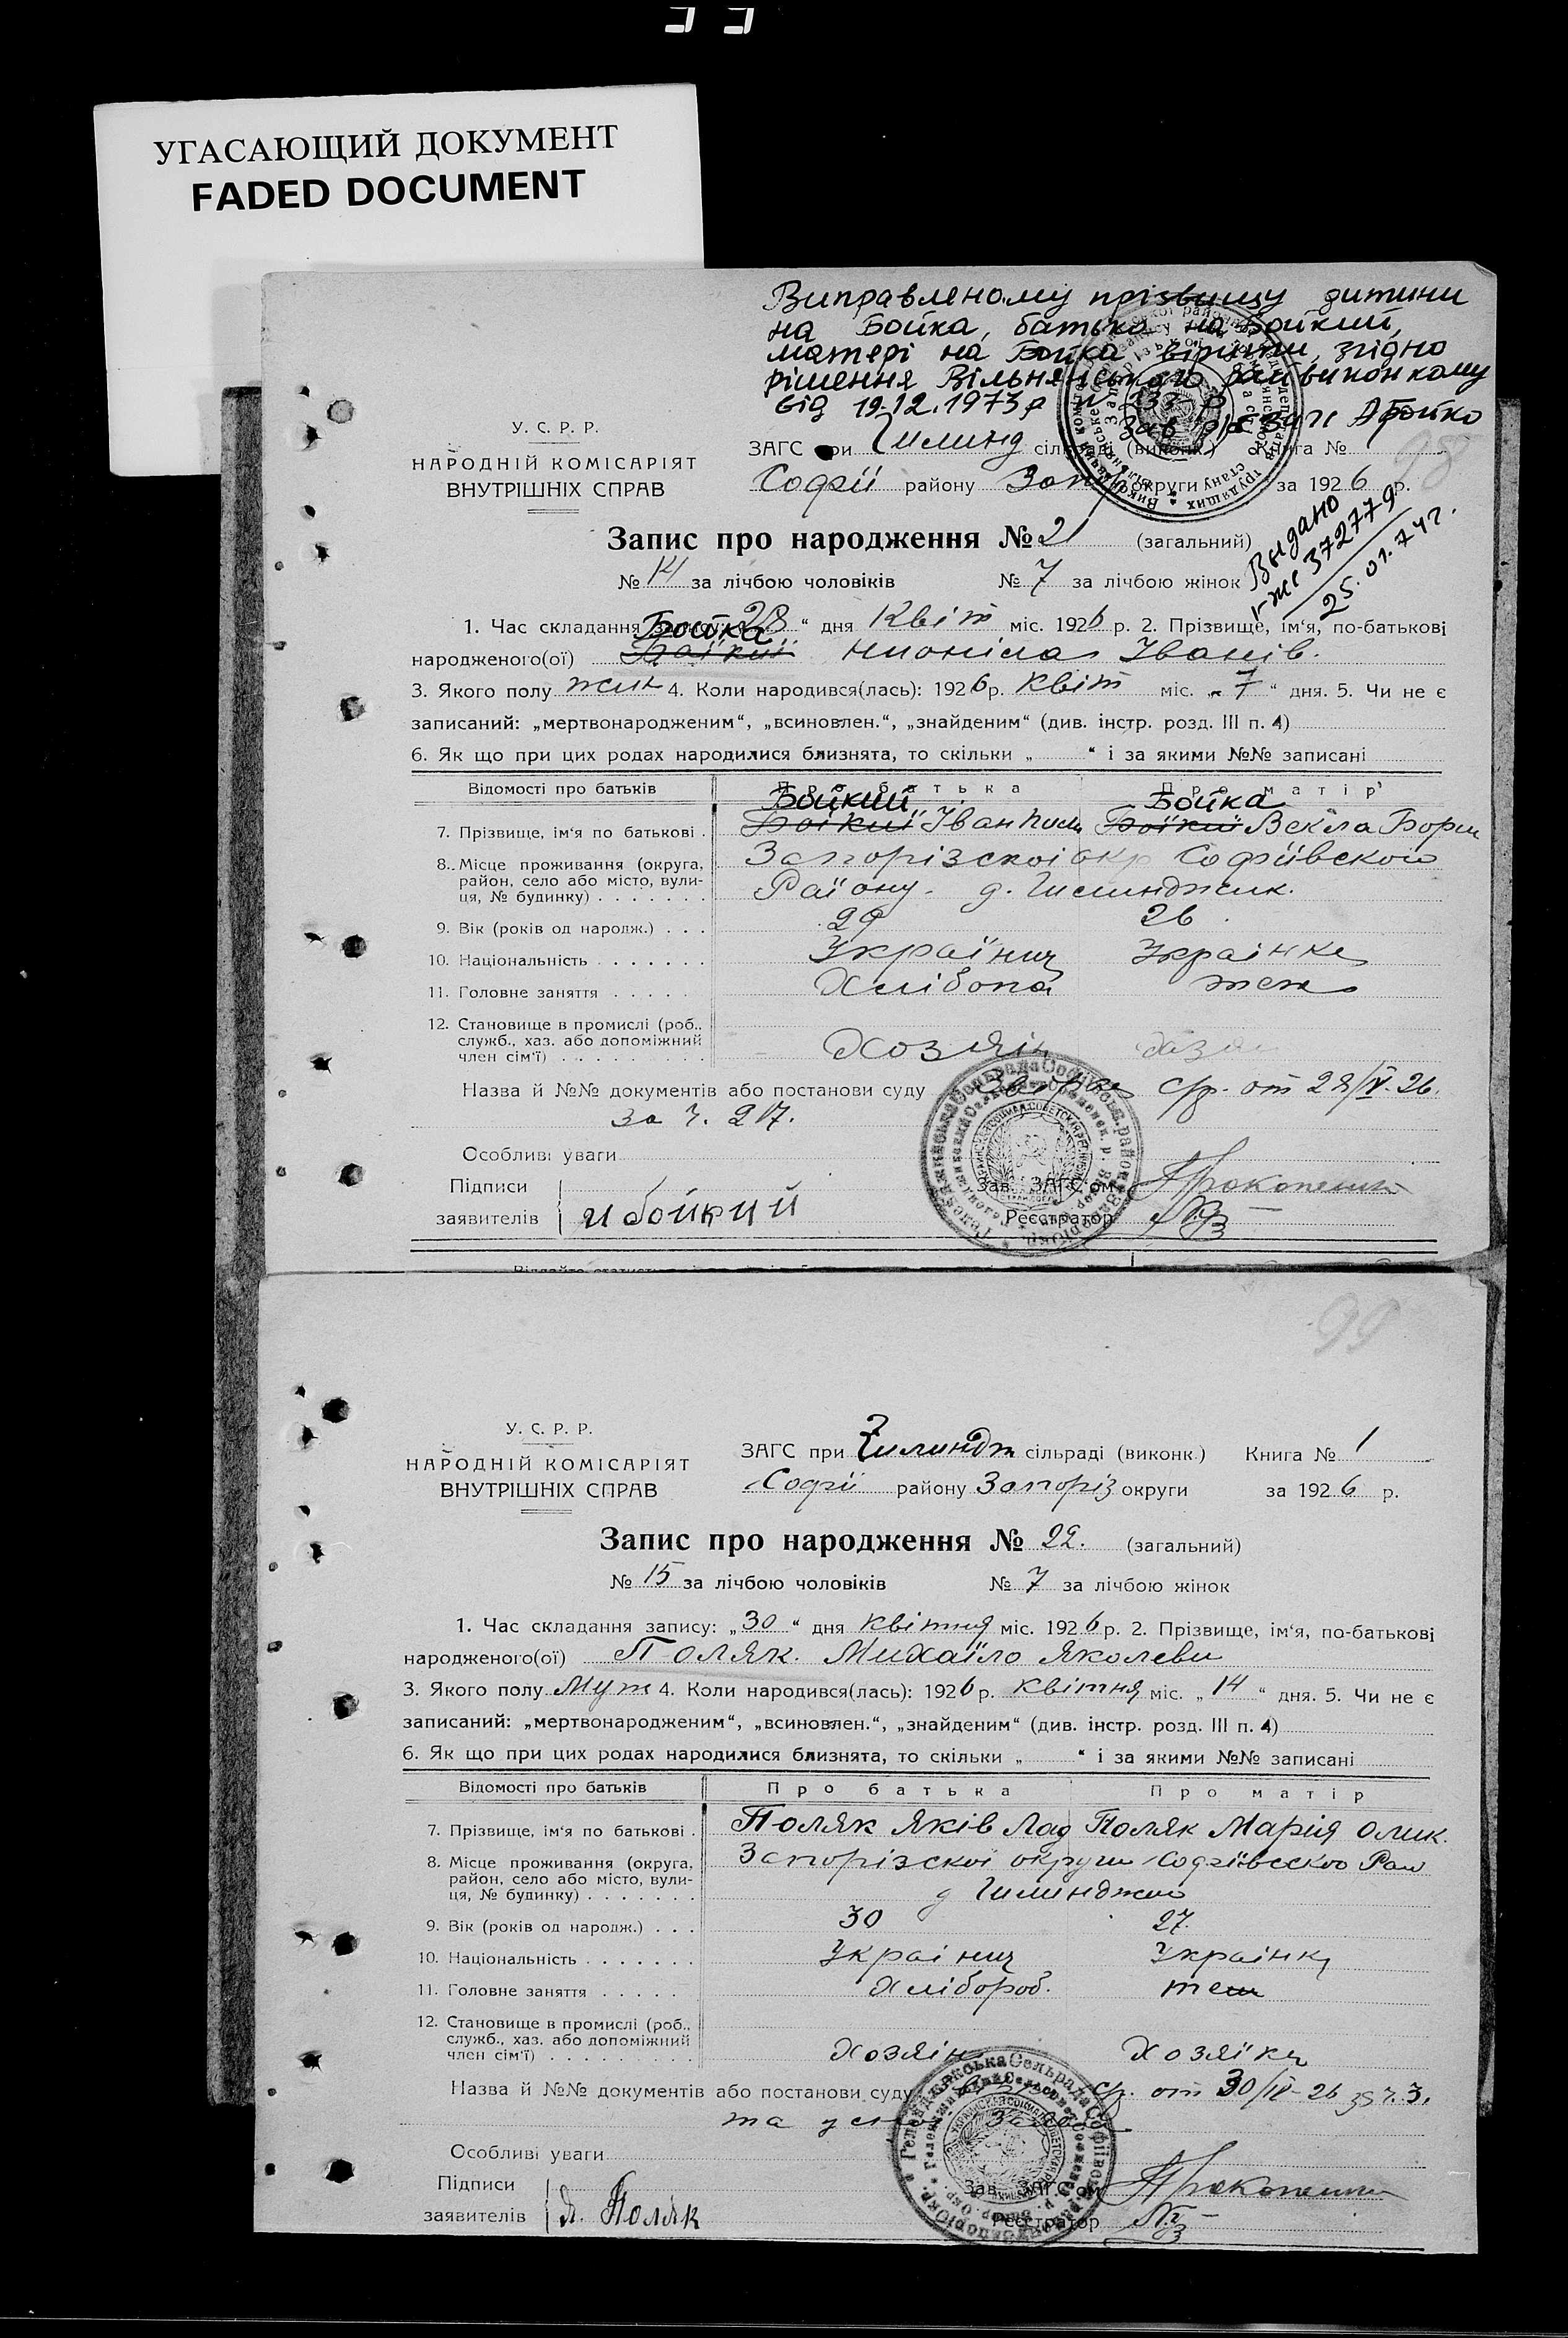 УГАСАЮЩИЙ ДОКУМЕНТ
FADED DOCUMENT
Виправленому прізвищу дитини
на Бойка, батька на Бойкий,
матері на Бойка вірити, згідно
рішення Вільнянського райвиконкому
від 19.12.1973р
98
У. С. Р. Р.
НАРОДНІЙ КОМІСАРІЯТ
ВНУТРІШНІХ СПРАВ
ЗАГС при сільраді (виконк.) Книга №
Софії району Запор округи за 1926 р.
Видано
372779
25.01.74г.
Запис про народження № 21 (загальний)
№ 14 за лічбою чоловіків № 7 за лічбою жінок
1. Час складання запису: „28“ дня Квіт міс. 1926 р. 2. Прізвище, ім'я, по-батькові
Бойка
народженого(ої) Іванів.
3. Якого полу жин 4. Коли народився(лась): 1926 р. Квіт міс. „7“ дня. 5. Чи не є
записаний: „мертвонародженим“, „всиновлен.“, „знайденим“ (див. інстр. розд. III п. 4)
6. Як що при цих родах народилися близнята, то скільки „ “ і за якими №№ записані
Відомості про батьків Про батька Про матір
Бойкий Бойка
7. Прізвище, ім'я по батькові . Бойкий Іван Бойкий Векла
8. Місце проживання (округа, район, село або місто, вулиця, № будинку) Запорізскоі окр Софіівского
Району. д.
9. Вік (років од народж.) . . . 29 26
10. Національність . . . . . . . Українец Українка
11. Головне заняття . . . . .
12. Становище в промислі (роб., служб., хаз. або допоміжний член сім'ї) . . . . . . . . . Хозяін
Назва й №№ документів або постанови суду ср. от 28/IV-26.
за ч. 217.
Особливі уваги
Підписи
заявителів И Бойкий
Зав. ЗАГС'ом
Реєстратор
99
У. С. Р. Р.
НАРОДНІЙ КОМІСАРІЯТ
ВНУТРІШНІХ СПРАВ
ЗАГС при сільраді (виконк.) Книга № 1
Софії району Запоріз округи за 1926 р.
Запис про народження № 22. (загальний)
№ 15 за лічбою чоловіків № 7 за лічбою жінок
1. Час складання запису: „30“ дня квітня міс. 1926 р. 2. Прізвище, ім'я, по-батькові
народженого(ої) Поляк. Михаїло Яколеви
3. Якого полу Муж 4. Коли народився(лась): 1926 р. Квітня міс. „14“ дня. 5. Чи не є
записаний: „мертвонародженим“, „всиновлен.“, „знайденим“ (див. інстр. розд. III п. 4)
6. Як що при цих родах народилися близнята, то скільки „ “ і за якими №№ записані
Відомості про батьків Про батька Про матір
7. Прізвище, ім'я по батькові . Поляк Яків Лад Поляк Марія Олик.
8. Місце проживання (округа, район, село або місто, вулиця, № будинку) Запорізскоі округи Раи
9. Вік (років од народж.) . . . 30 27.
10. Національність . . . . . . . Украінец Украінка
11. Головне заняття . . . . . Хлібороб. теж
12. Становище в промислі (роб., служб., хаз. або допоміжний член сім'ї) . . . . . . . . . Хозяін Хозяїка
Назва й №№ документів або постанови суду ср. от 30/IV-26 за ч. 3.
Особливі уваги
Підписи
заявителів Я. Поляк
Зав. ЗАГС'ом
Реєстратор